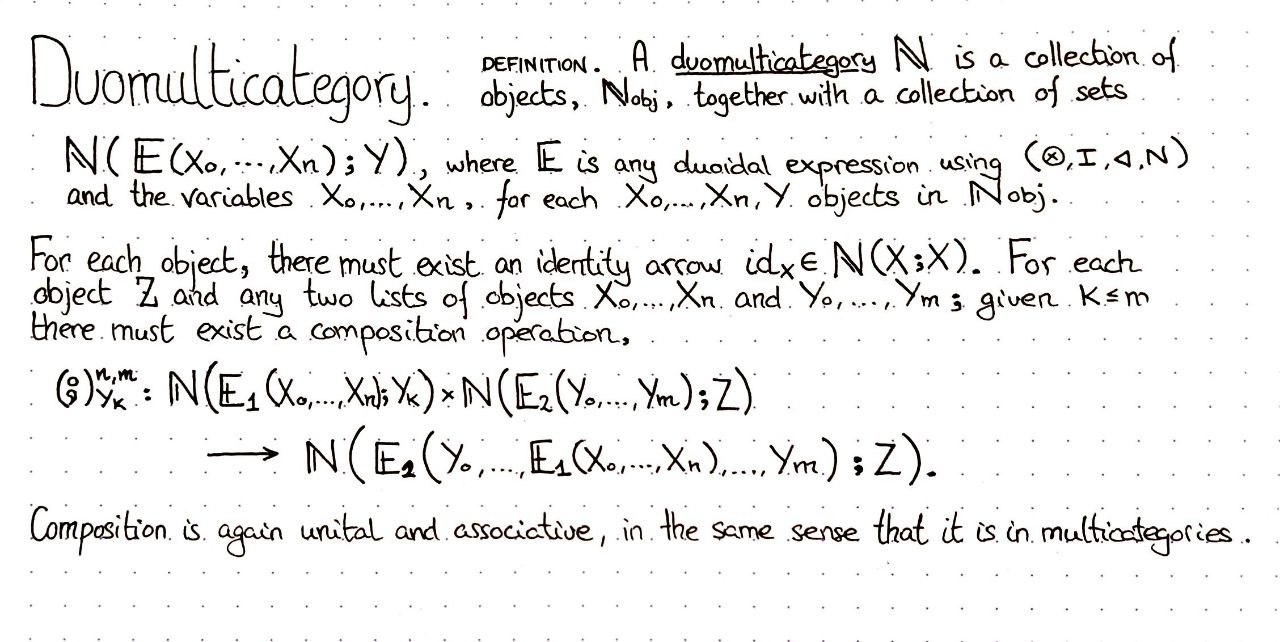 Duomulticategory. DEFINITION. A duomulticategory ℕ is a collection of
objects, ℕobj, together with a collection of sets
ℕ(𝔼(X₀,...,Xₙ);Y), where 𝔼 is any duoidal expression using (⊗,I,◁,N)
and the variables X₀,...,Xₙ, for each X₀,...,Xₙ,Y objects in ℕobj.
For each object, there must exist an identity arrow idₓ∈ℕ(X;X). For each
object Z and any two lists of objects X₀,...,Xₙ and Y₀,...,Yₘ; given K≤m
there must exist a composition operation,
(⨾)ⁿ,ᵐ_Yₖ : ℕ(𝔼₁(X₀,...,Xₙ);Yₖ)×ℕ(𝔼₂(Y₀,...,Yₘ);Z)
⟶ ℕ(𝔼₂(Y₀,...,𝔼₁(X₀,...,Xₙ),...,Yₘ);Z).
Composition is again unital and associative, in the same sense that it is in multicategories.